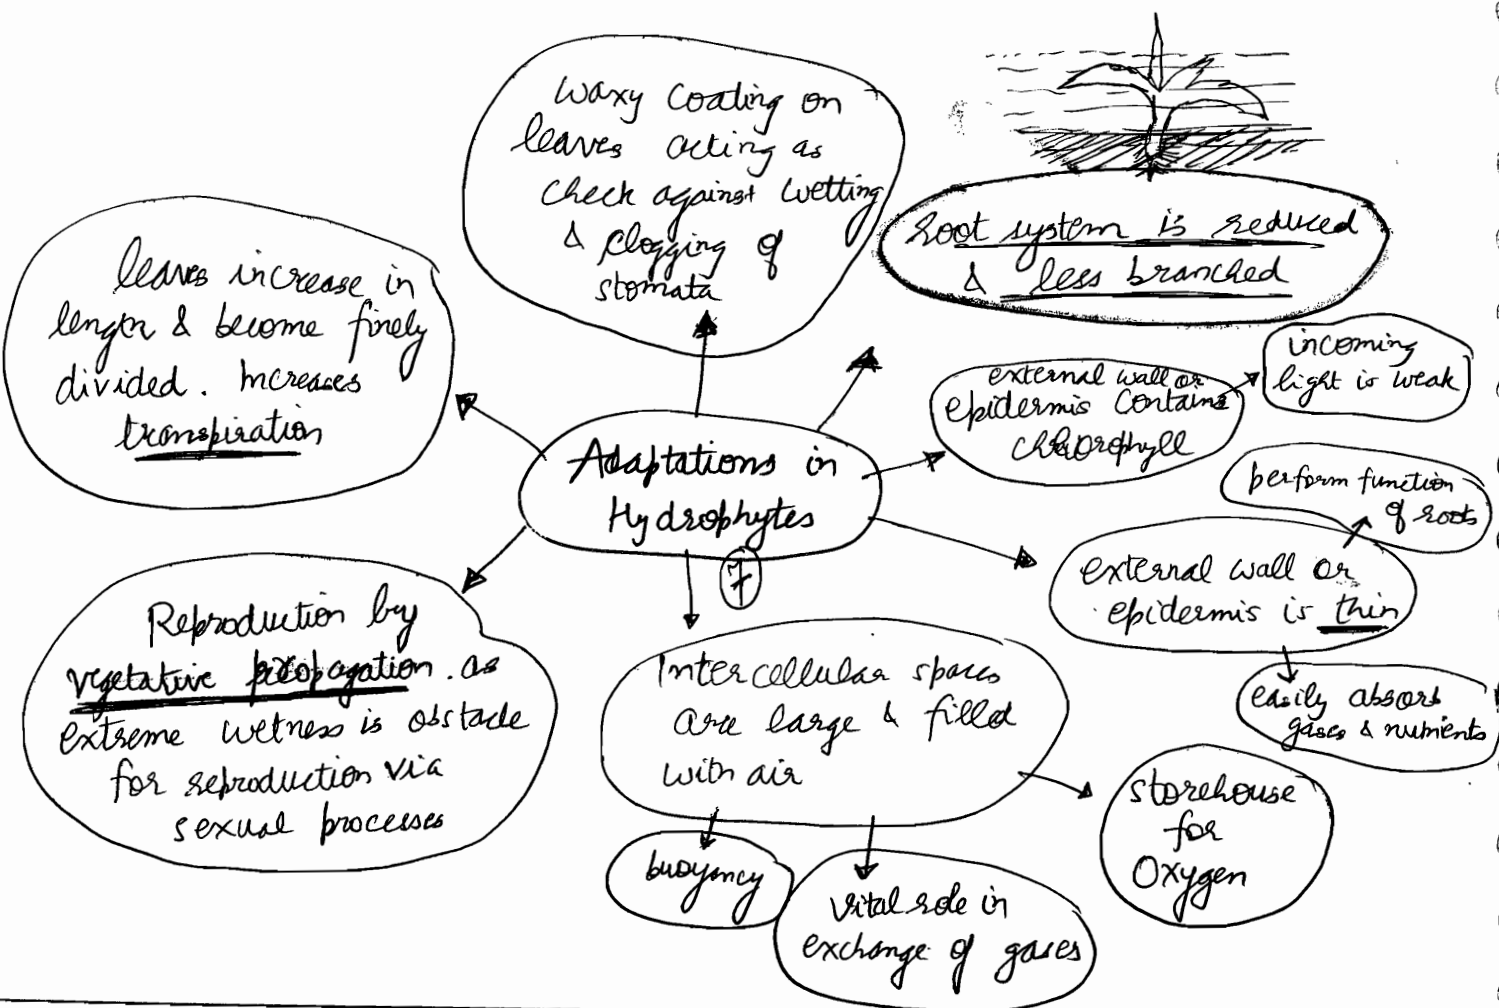 waxy coating on
leaves acting as
check against wetting
& clogging of
stomata
root system is reduced
& less branched
leaves increase in
length & become finely
divided. Increases
transpiration
external wall or
epidermis contains
chlorophyll
incoming
light is weak
Adaptations in
Hydrophytes
7
perform function
of roots
external wall or
epidermis is thin
easily absorb
gases & nutrients
Reproduction by
vegetative propagation. as
extreme wetness is obstacle
for reproduction via
sexual processes
Intercellular spaces
are large & filled
with air
storehouse
for
Oxygen
buoyancy
vital role in
exchange of gases